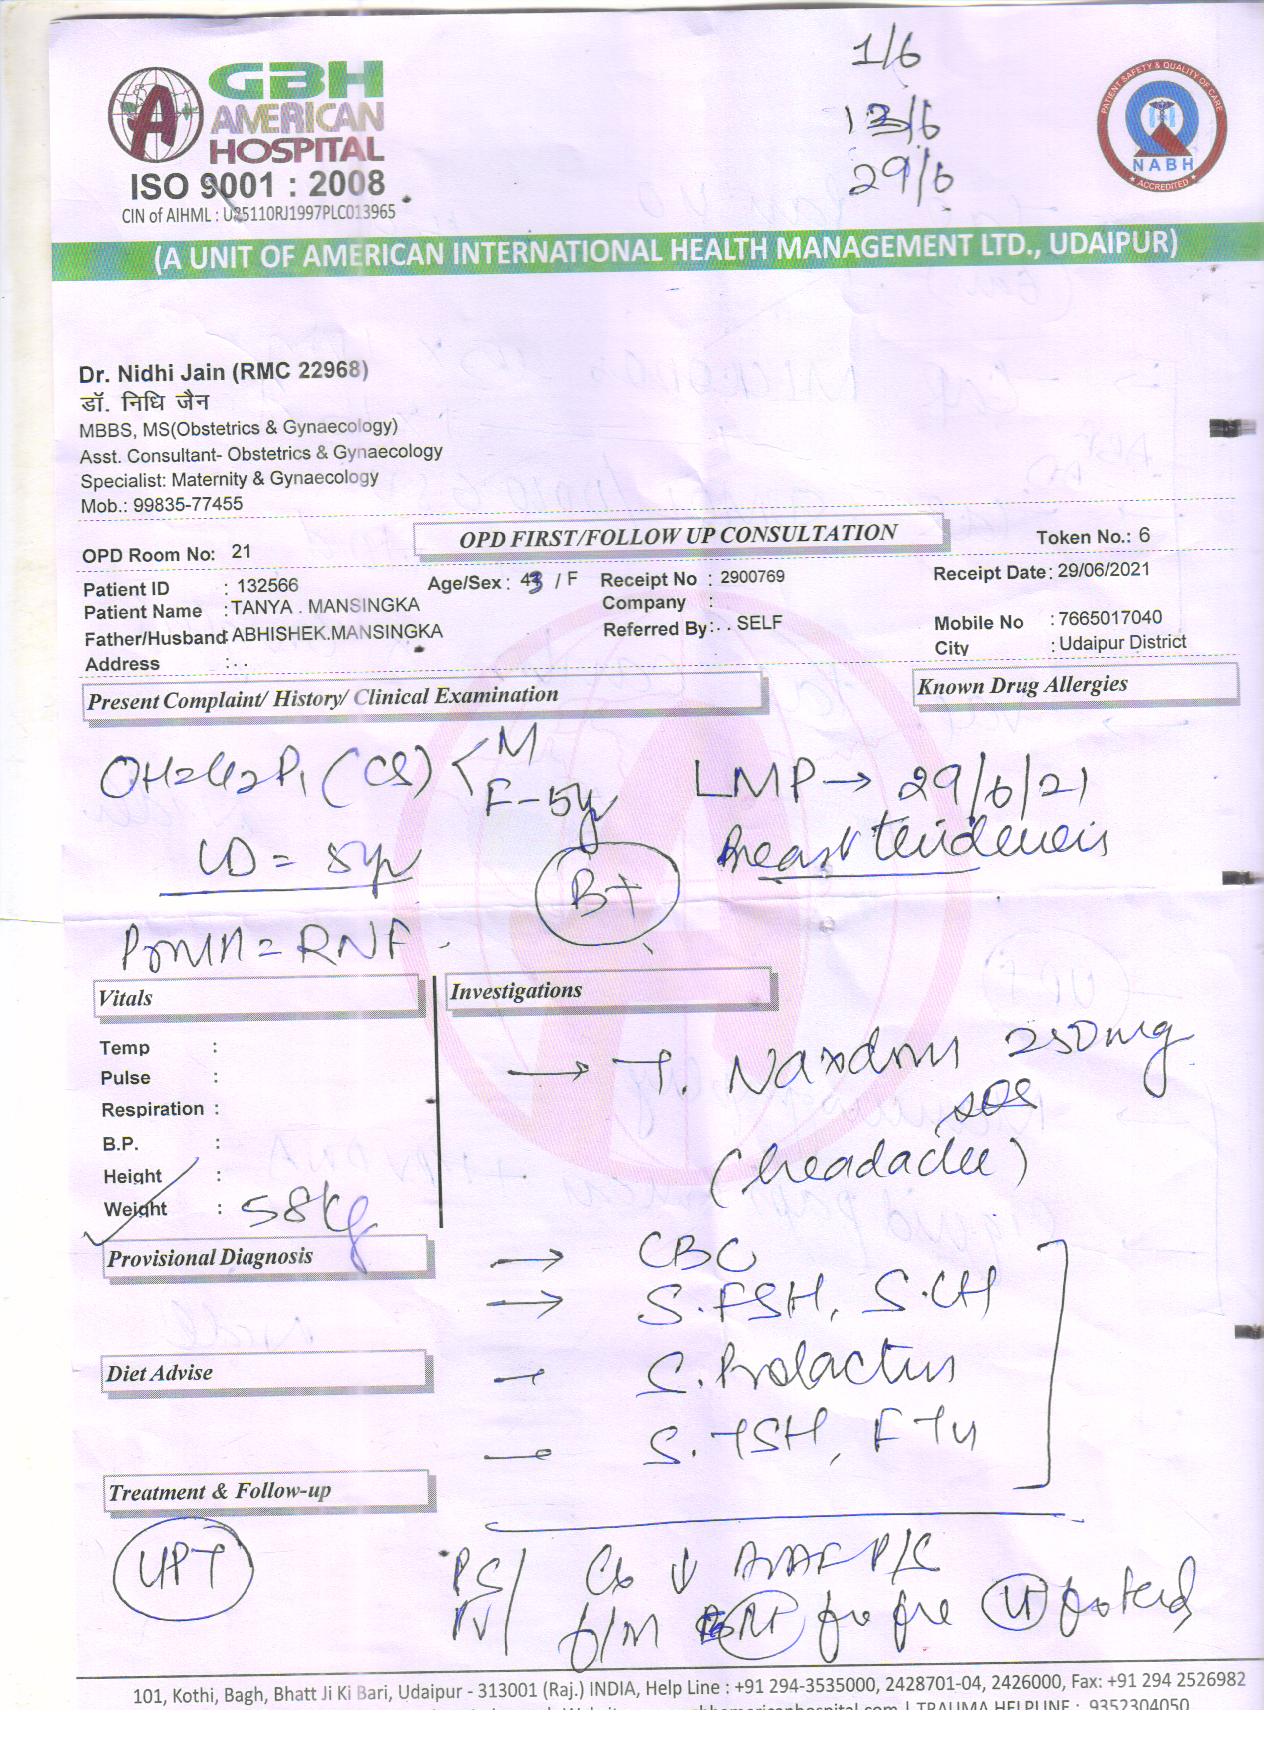 1/6
13/6
29/6
GBH
AMERICAN
HOSPITAL
ISO 9001 : 2008
CIN of AIHML : U85110RJ1997PLC013965
PATIENT SAFETY & QUALITY OF CARE
NABH
ACCREDITED
(A UNIT OF AMERICAN INTERNATIONAL HEALTH MANAGEMENT LTD., UDAIPUR)
Dr. Nidhi Jain (RMC 22968)
डॉ. निधि जैन
MBBS, MS(Obstetrics & Gynaecology)
Asst. Consultant- Obstetrics & Gynaecology
Specialist: Maternity & Gynaecology
Mob.: 99835-77455
OPD Room No: 21 OPD FIRST/FOLLOW UP CONSULTATION Token No.: 6
Patient ID : 132566 Age/Sex : 43 / F Receipt No : 2900769 Receipt Date: 29/06/2021
Patient Name : TANYA . MANSINGKA Company :
Father/Husband: ABHISHEK.MANSINGKA Referred By: . . SELF Mobile No : 7665017040
Address : . . City : Udaipur District
Present Complaint/ History/ Clinical Examination Known Drug Allergies
P1 (CS) < M LMP → 29/6/21
F-5y
LD = 5yr B+ Breast tenderness
= RNF
Vitals Investigations
Temp :
Pulse :
Respiration :
B.P. :
Height :
Weight : 58kg
→ T. Naxdom 250mg
SOS
(headache)
Provisional Diagnosis → CBC
→ S.FSH, S.LH
Diet Advise - S.Prolactin
- S.TSH, FT4
Treatment & Follow-up
UPT PS/ P/S
PV/
101, Kothi, Bagh, Bhatt Ji Ki Bari, Udaipur - 313001 (Raj.) INDIA, Help Line : +91 294-3535000, 2428701-04, 2426000, Fax: +91 294 2526982
TRAUMA HELPLINE : 9352304050